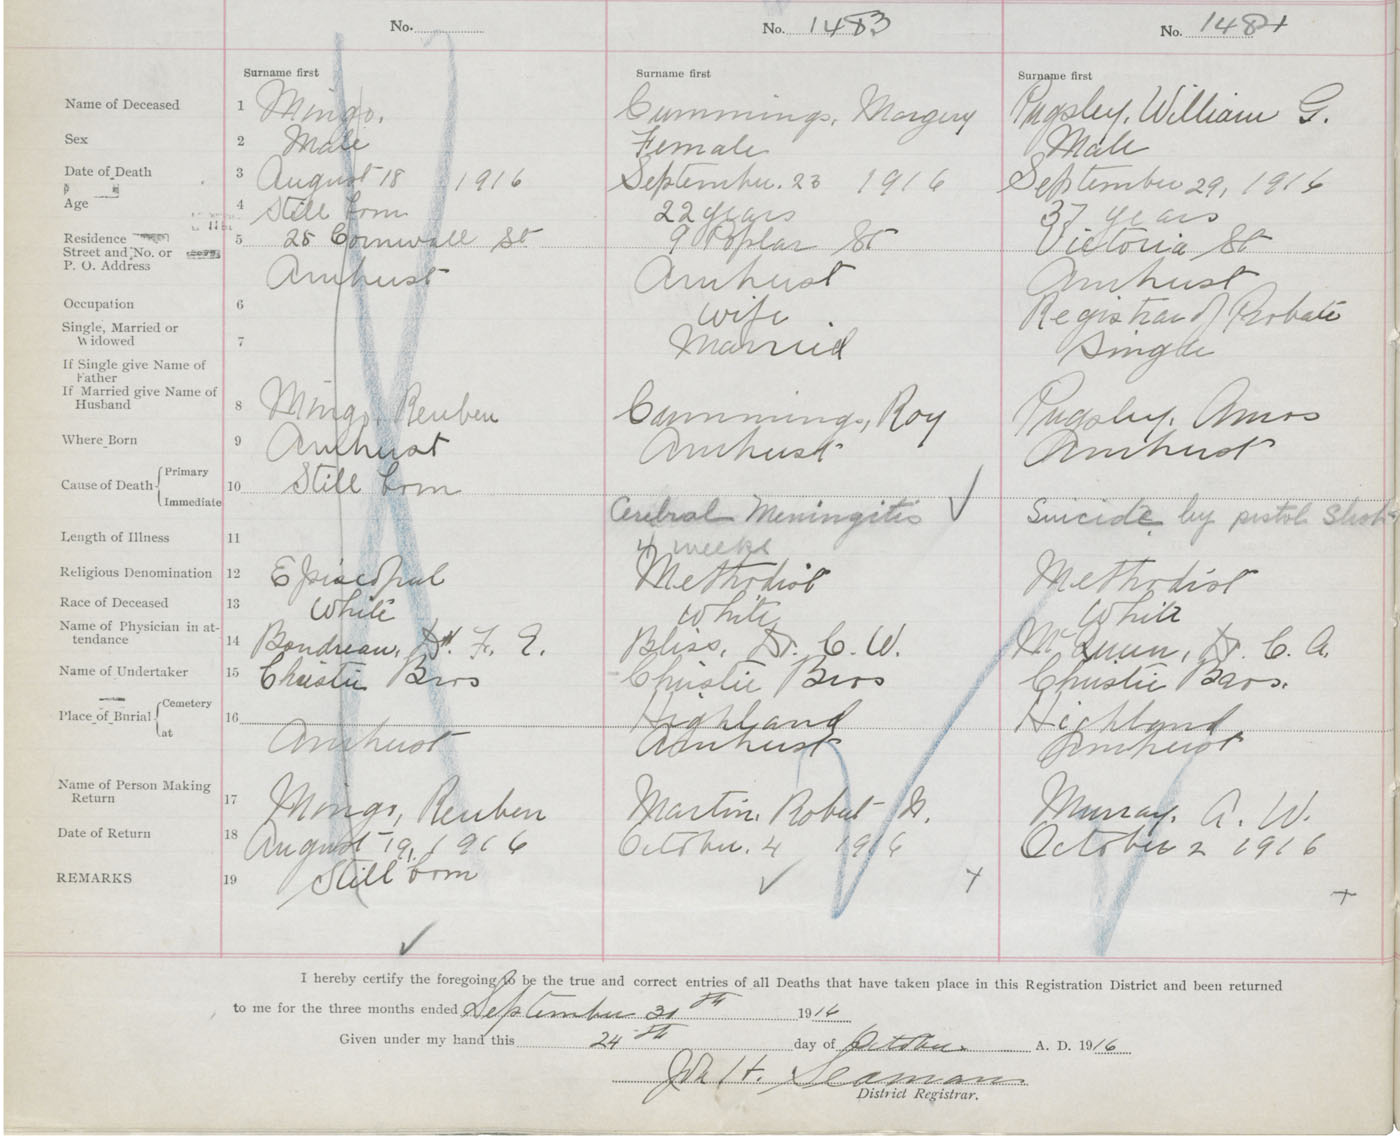 No. No. 1483 No. 1484
Surname first Surname first Surname first
Name of Deceased 1 Mingo, Cummings, Margery Pugsley, William G.
Sex 2 Male Female Male
Date of Death 3 August 18 1916 September 23 1916 September 29, 1916
Age 4 Still born 22 years 37 years
Residence 5 28 Cornwall St 9 Poplar St Victoria St
Street and No. or
P. O. Address Amherst Amherst Amherst
Occupation 6 wife Registrar of Probate
Single, Married or
Widowed 7 Married Single
If Single give Name of
Father
If Married give Name of
Husband 8 Mingo, Reuben Cummings, Roy Pugsley, Amos
Where Born 9 Amherst Amherst Amherst
Cause of Death Primary 10 Still born
Immediate Cerebral Meningitis Suicide by pistol Shot
Length of Illness 11 4 weeks
Religious Denomination 12 Episcopal Methodist Methodist
Race of Deceased 13 White White White
Name of Physician in at-
tendance 14 Boudreau, Dr. F. E. Bliss, Dr. C. W. McQueen, Dr. C. A.
Name of Undertaker 15 Christie Bros Christie Bros Christie Bros.
Place of Burial Cemetery 16 Highland Highland
at Amherst Amherst Amherst
Name of Person Making
Return 17 Mingo, Reuben Martin, Robert Murray, A. W.
Date of Return 18 August 19, 1916 October 4 1916 October 2 1916
REMARKS 19 Still born
I hereby certify the foregoing to be the true and correct entries of all Deaths that have taken place in this Registration District and been returned
to me for the three months ended September 30th 1916
Given under my hand this 24th day of October A. D. 1916
Jno. H. Seaman
District Registrar.